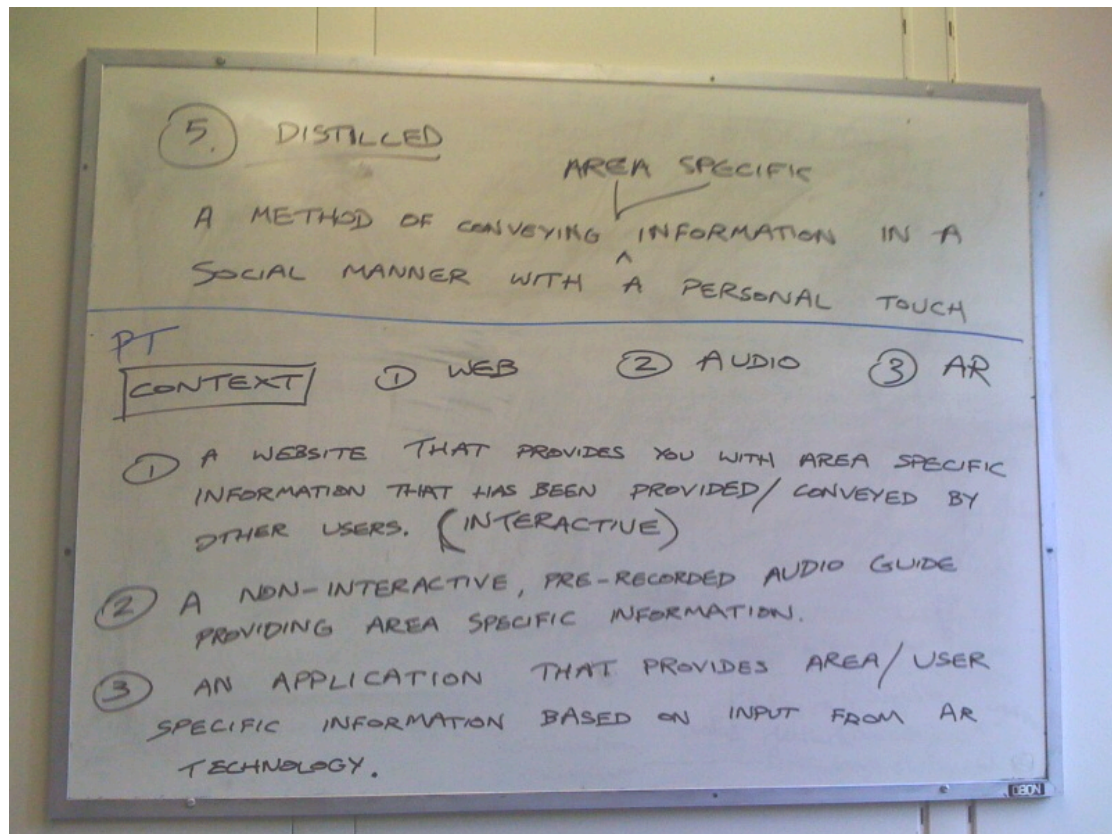 5. DISTILLED
AREA SPECIFIC
A METHOD OF CONVEYING ^ INFORMATION IN A
SOCIAL MANNER WITH A PERSONAL TOUCH
PT
CONTEXT ① WEB ② AUDIO ③ AR
① A WEBSITE THAT PROVIDES YOU WITH AREA SPECIFIC
INFORMATION THAT HAS BEEN PROVIDED/CONVEYED BY
OTHER USERS. (INTERACTIVE)
② A NON-INTERACTIVE, PRE-RECORDED AUDIO GUIDE
PROVIDING AREA SPECIFIC INFORMATION.
③ AN APPLICATION THAT PROVIDES AREA/USER
SPECIFIC INFORMATION BASED ON INPUT FROM AR
TECHNOLOGY.